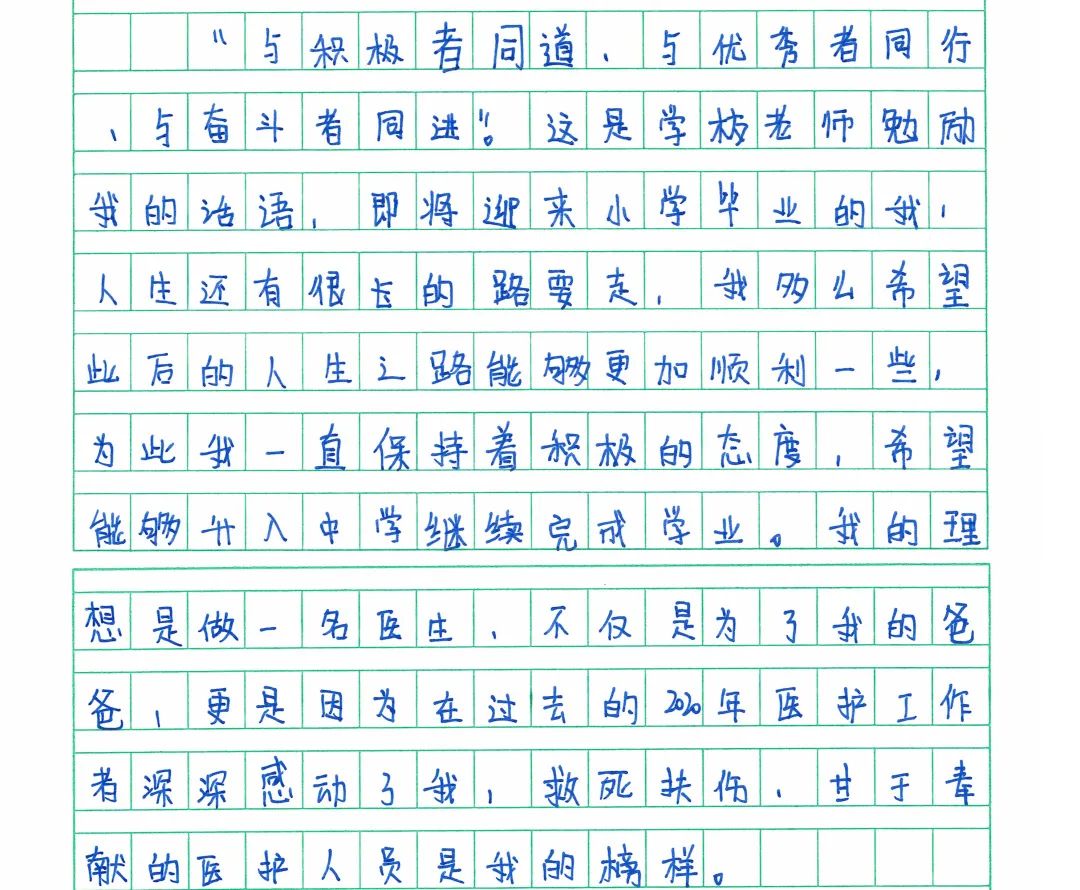 “与积极者同道、与优秀者同行
、与奋斗者同进”。这是学校老师勉励
我的话语，即将迎来小学毕业的我，
人生还有很长的路要走，我多么希望
此后的人生之路能够更加顺利一些，
为此我一直保持着积极的态度，希望
能够升入中学继续完成学业。我的理
想是做一名医生，不仅是为了我的爸
爸，更是因为在过去的2020年医护工作
者深深感动了我，救死扶伤、甘于奉
献的医护人员是我的榜样。